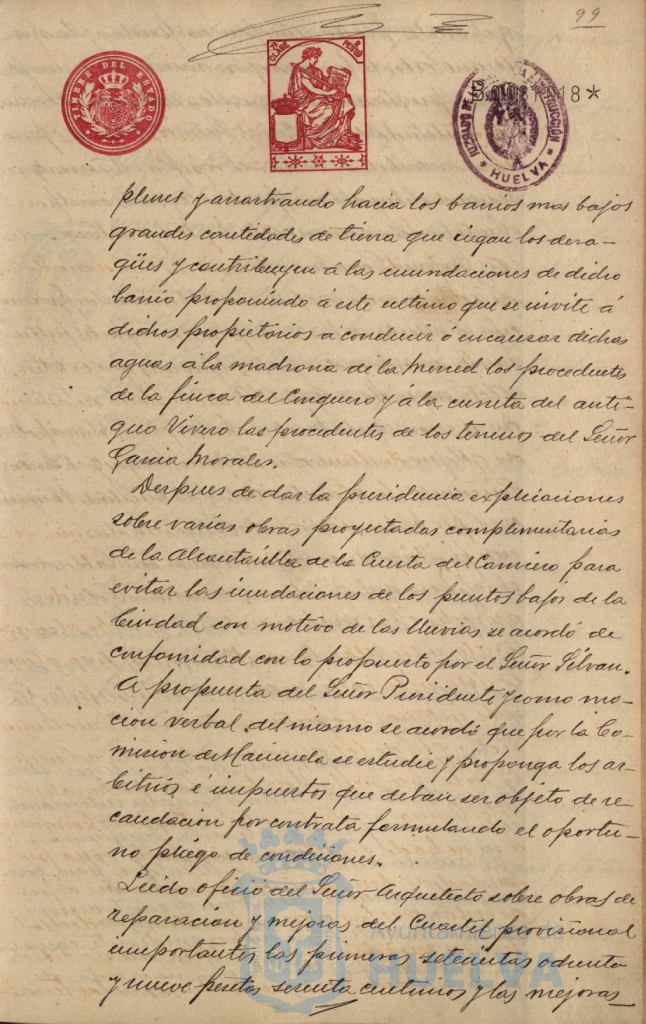 99
TIMBRE DEL ESTADO
7ª CLASE
PESETAS
JUZGADO DE INSTRUCCIÓN
* HUELVA *
1918*
plenes y arrastrando hacia los barrios mas bajos
grandes cantidades de tierra que ciegan los desa-
gües y contribuyen á las inundaciones de dicho
barrio proponiendo á este ultimo que se invite á
dichos propietarios a conducir ó encausar dichas
aguas á la madrona de la Merced los procedentes
de la finca del Conquero y á la cuneta del anti-
guo Vivero las procedentes de los terrenos del Señor
Garcia Morales.
Despues de dar la presidencia explicaciones
sobre varias obras proyectadas complementarias
de la Alcantarilla de la Cuesta del Carnicero para
evitar las inundaciones de los puntos bajos de la
Ciudad con motivo de las lluvias se acordó de
conformidad con lo propuesto por el Señor Silván.
A propuesta del Señor Presidente y como mo-
cion verbal del mismo se acordó que por la Co-
mision de Hacienda se estudie y proponga los ar-
bitrios é impuestos que deban ser objeto de re
caudacion por contrata formulando el oportu-
no pliego de condiciones.
Leido oficio del Señor Arquitecto sobre obras de
reparacion y mejoras del Cuartel provisional
importantes las primeras setecientas ochenta
y nueve pesetas sesenta centimos y las mejoras
Ayuntamiento de
HUELVA